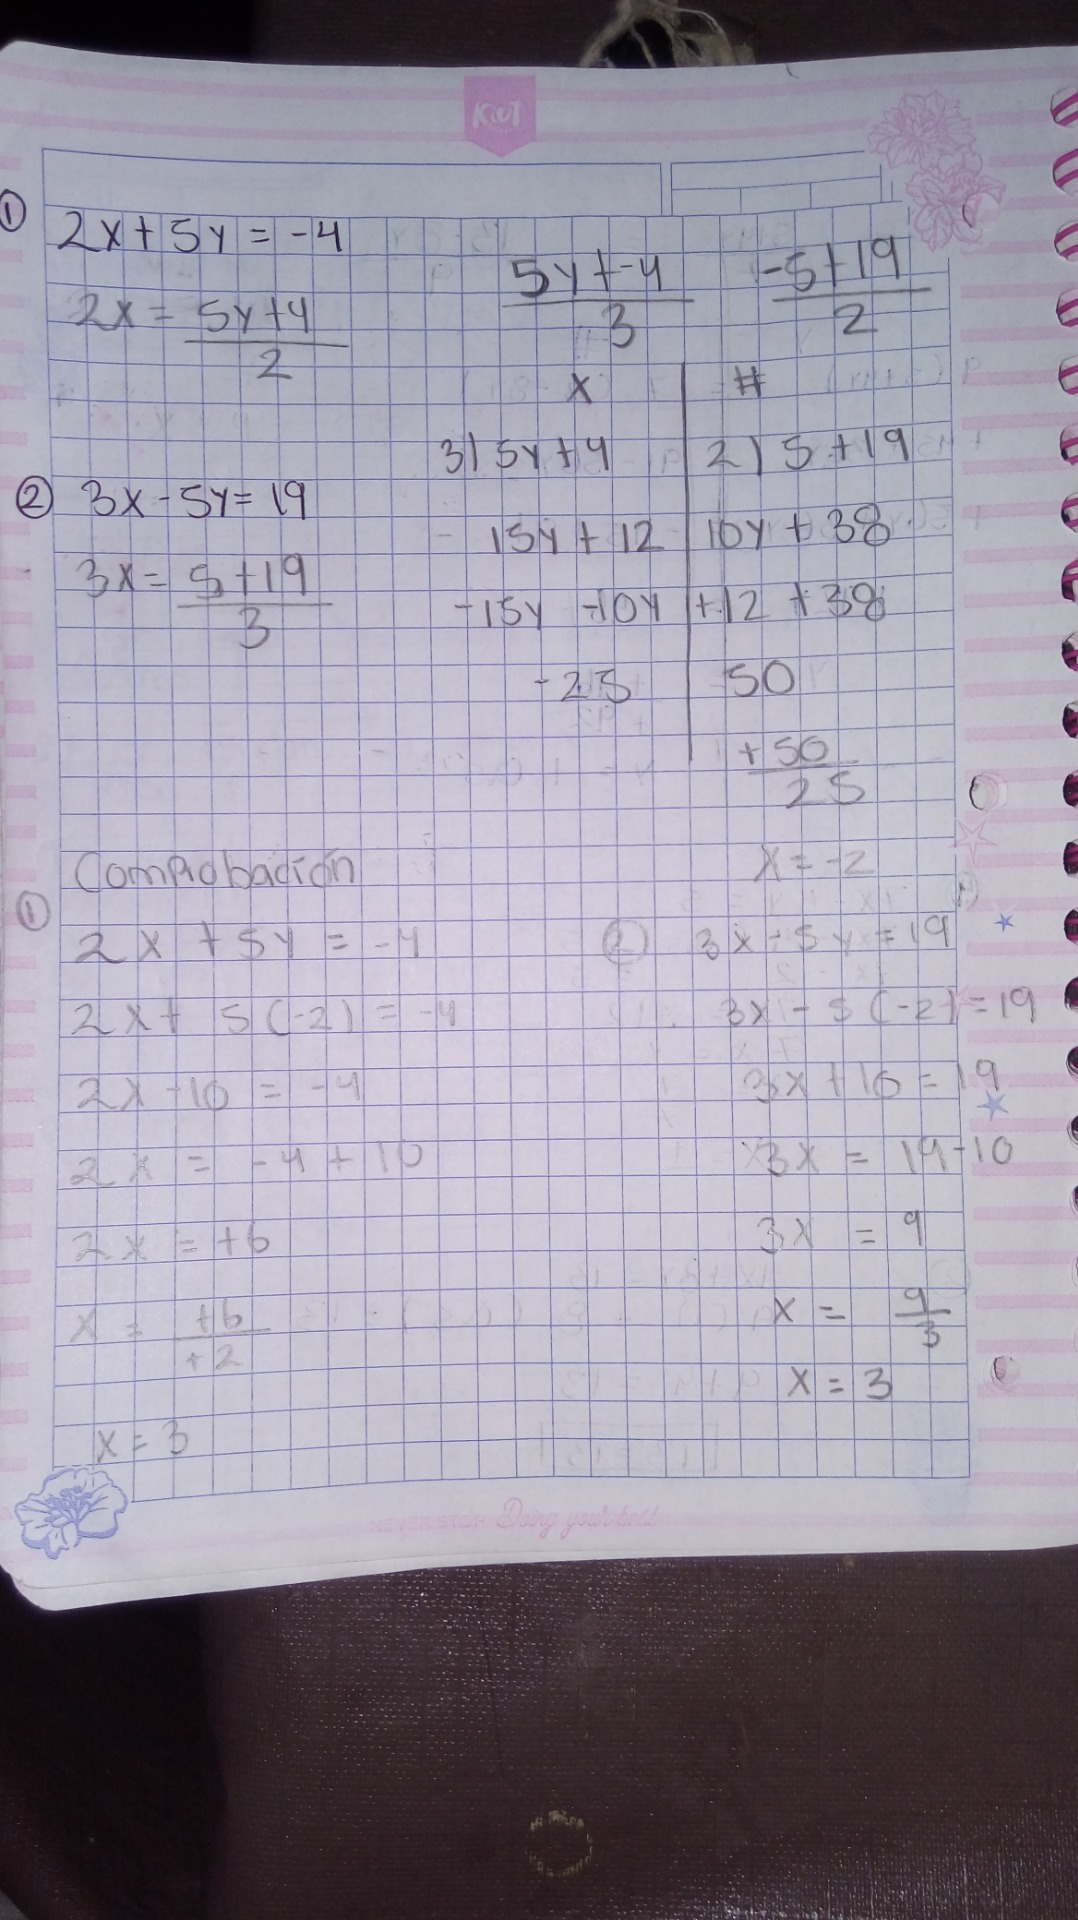 Kiut
①
2x + 5y = -4
2x = 5y+4
2
5y+-4
3
-5+19
2
x #
3) 5y+4 2) 5+19
② 3x - 5y = 19
15y + 12 10y + 38
3x = 5+19
3
-15y -10y +12 +38
-25 50
+50
25
x = -2
Comprobación
①
2x + 5y = -4
2x + 5(-2) = -4
2x -10 = -4
2x = -4 + 10
2x = +6
x = +6
+2
x = 3
② 3x - 5y = 19
3x - 5(-2) = 19
3x + 10 = 19
3x = 19-10
3x = 9
x = 9
3
x = 3
NEVER STOP Doing your best